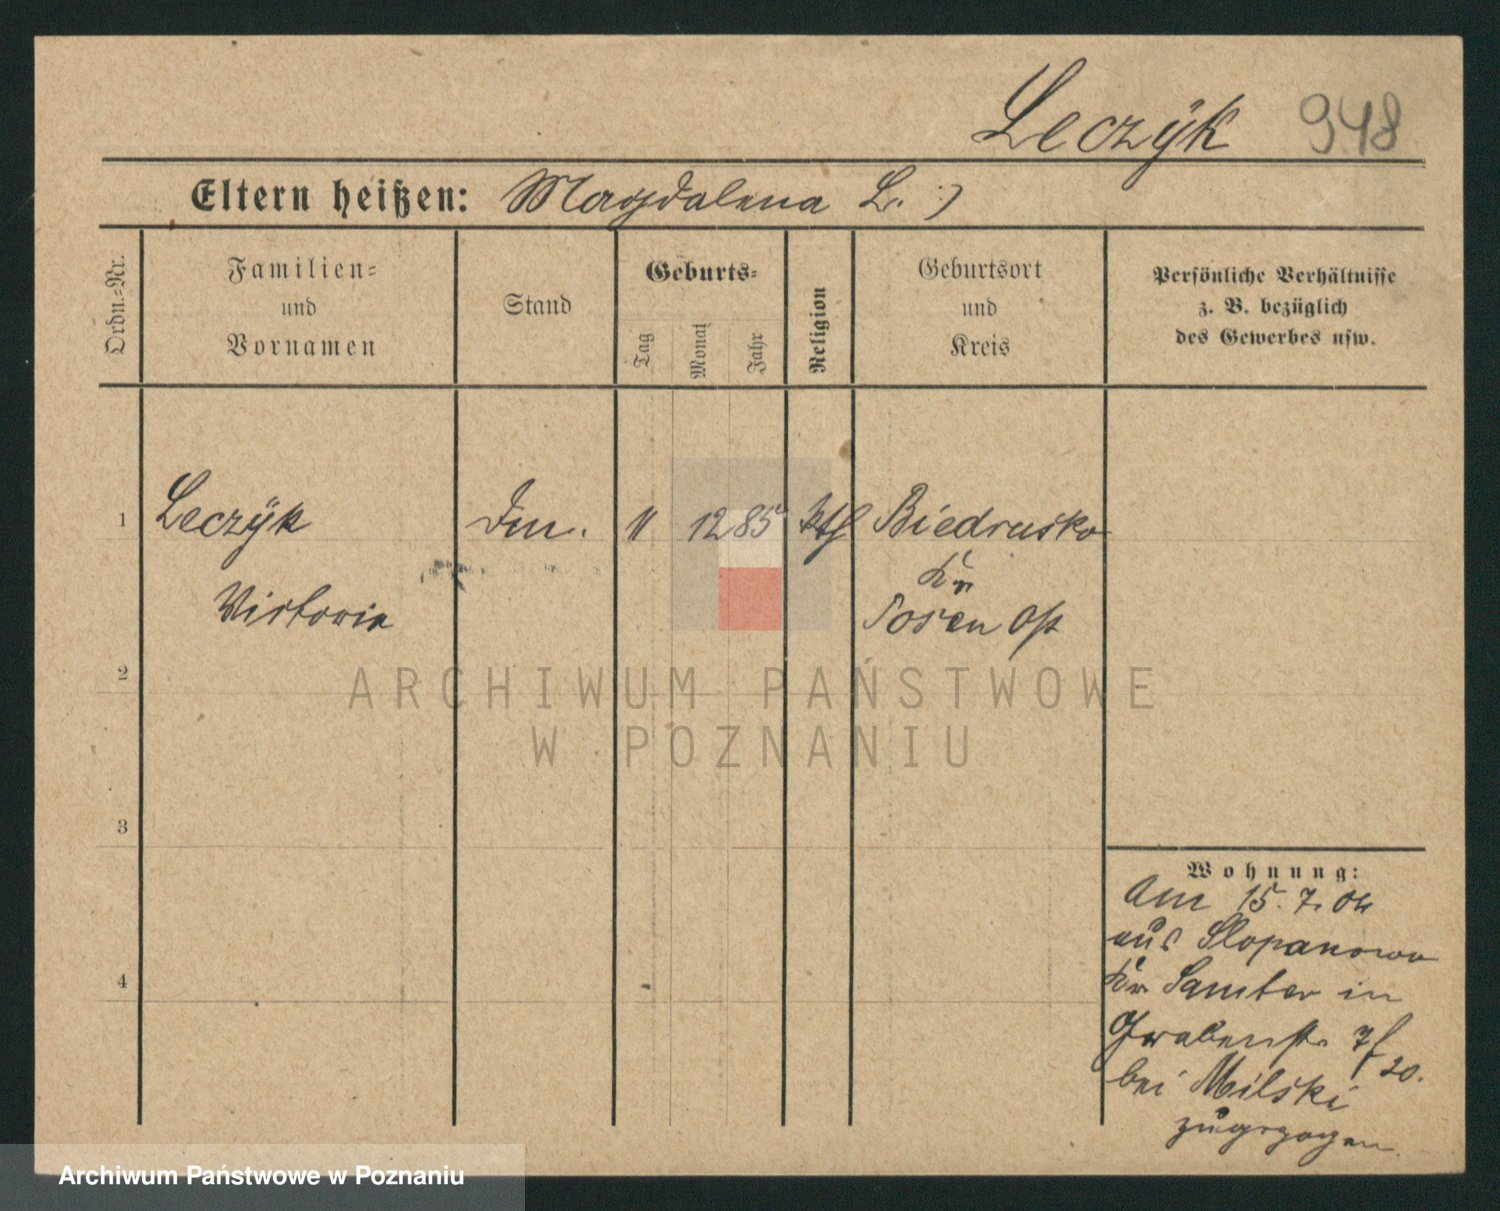 Leczÿk 948
Eltern heißen: Magdalena L. :)
Ordn.-Nr.
Familien-
und
Vornamen
Stand
Geburts-
Tag
Monat
Jahr
Religion
Geburtsort
und
Kreis
Persönliche Verhältnisse
z. B. bezüglich
des Gewerbes usw.
1 Leczÿk 11 12 85 kth Biedrusko
Kr
Victoria Posen Ost
2
ARCHIWUM PAŃSTWOWE
W POZNANIU
3
Wohnung:
Am 15. 7. 04
aus Slopanowo
4
Kr Samter in
Grabenstr. 7/20.
bei Milski
zugezogen
Archiwum Państwowe w Poznaniu